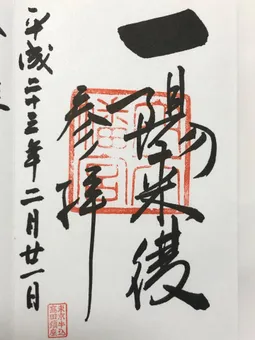 一陽来復
参拝
平成二十三年二月廿一日
東京牛込
高田鎮座